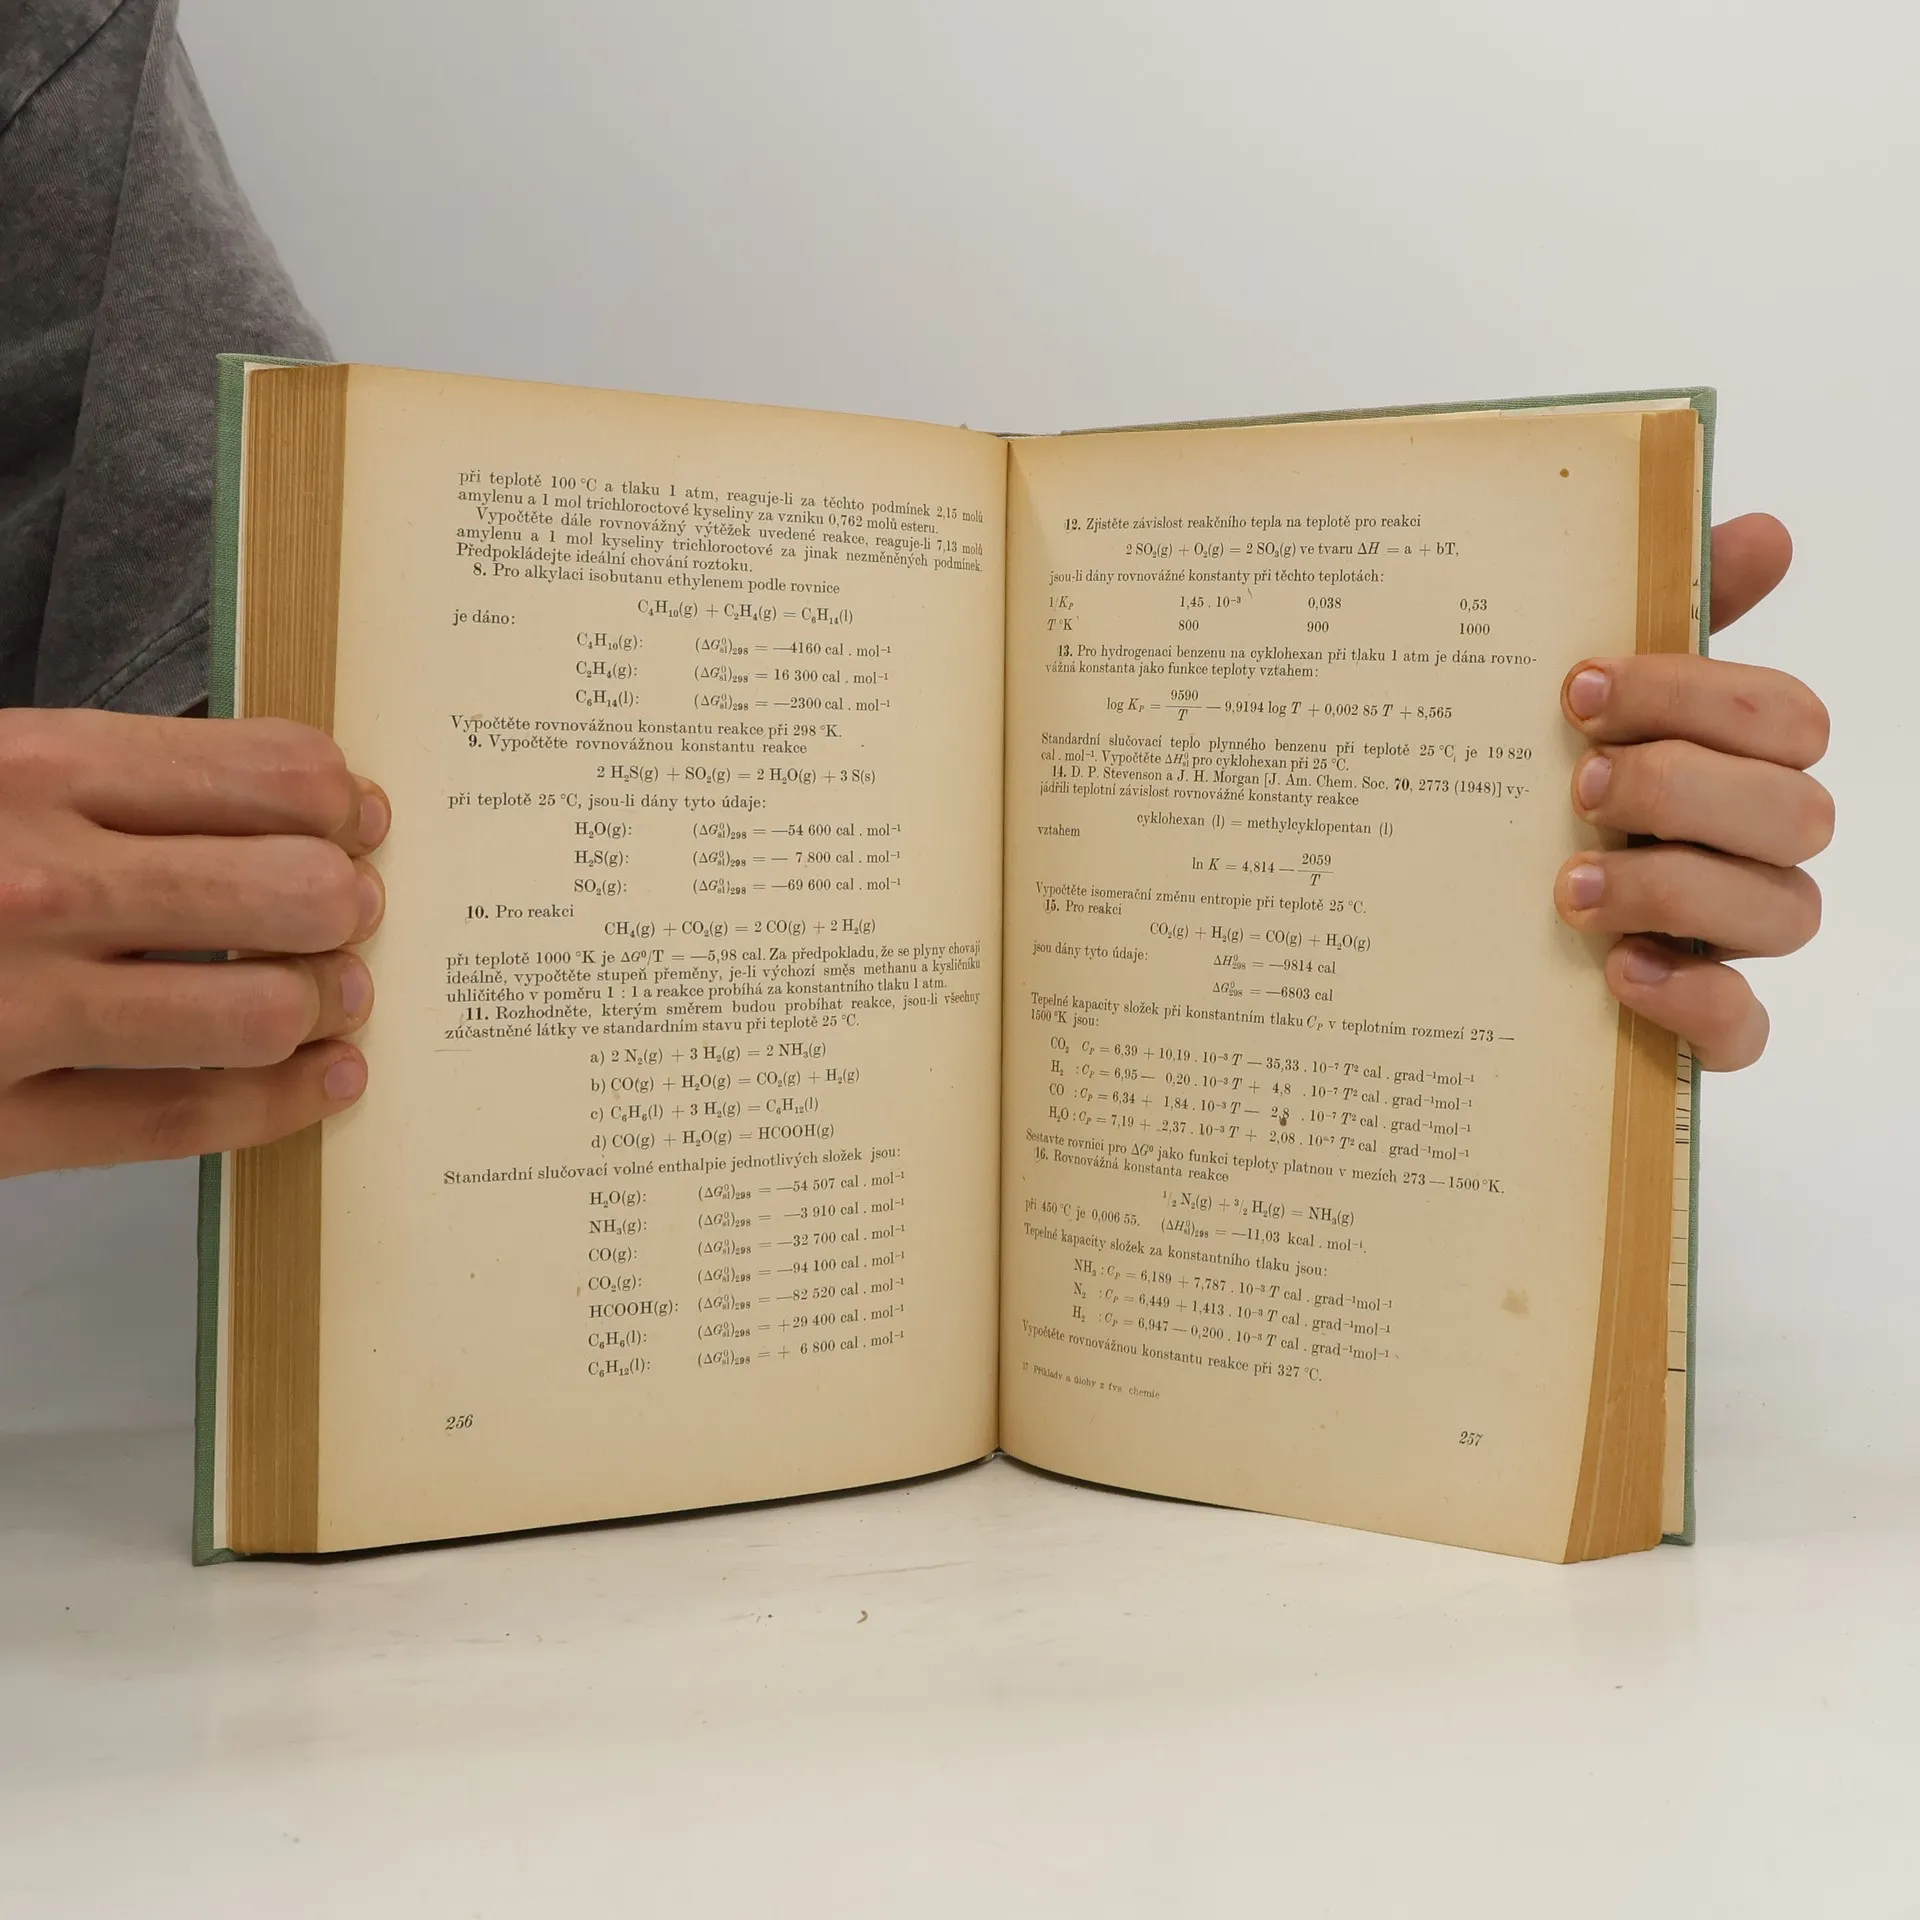 při teplotě 100 °C a tlaku 1 atm, reaguje-li za těchto podmínek 2,15 molů
amylenu a 1 mol trichloroctové kyseliny za vzniku 0,762 molů esteru.
Vypočtěte dále rovnovážný výtěžek uvedené reakce, reaguje-li 7,13 molů
amylenu a 1 mol kyseliny trichloroctové za jinak nezměněných podmínek.
Předpokládejte ideální chování roztoku.
8. Pro alkylaci isobutanu ethylenem podle rovnice
C₄H₁₀(g) + C₂H₄(g) = C₆H₁₄(l)
je dáno:
C₄H₁₀(g): (ΔG⁰sl)₂₉₈ = —4160 cal . mol⁻¹
C₂H₄(g): (ΔG⁰sl)₂₉₈ = 16 300 cal . mol⁻¹
C₆H₁₄(l): (ΔG⁰sl)₂₉₈ = —2300 cal . mol⁻¹
Vypočtěte rovnovážnou konstantu reakce při 298 °K.
9. Vypočtěte rovnovážnou konstantu reakce
2 H₂S(g) + SO₂(g) = 2 H₂O(g) + 3 S(s)
při teplotě 25 °C, jsou-li dány tyto údaje:
H₂O(g): (ΔG⁰sl)₂₉₈ = —54 600 cal . mol⁻¹
H₂S(g): (ΔG⁰sl)₂₉₈ = — 7 800 cal . mol⁻¹
SO₂(g): (ΔG⁰sl)₂₉₈ = —69 600 cal . mol⁻¹
10. Pro reakci
CH₄(g) + CO₂(g) = 2 CO(g) + 2 H₂(g)
při teplotě 1000 °K je ΔG⁰/T = —5,98 cal. Za předpokladu, že se plyny chovají
ideálně, vypočtěte stupeň přeměny, je-li výchozí směs methanu a kysličníku
uhličitého v poměru 1 : 1 a reakce probíhá za konstantního tlaku 1 atm.
11. Rozhodněte, kterým směrem budou probíhat reakce, jsou-li všechny
zúčastněné látky ve standardním stavu při teplotě 25 °C.
a) 2 N₂(g) + 3 H₂(g) = 2 NH₃(g)
b) CO(g) + H₂O(g) = CO₂(g) + H₂(g)
c) C₆H₆(l) + 3 H₂(g) = C₆H₁₂(l)
d) CO(g) + H₂O(g) = HCOOH(g)
Standardní slučovací volné enthalpie jednotlivých složek jsou:
H₂O(g): (ΔG⁰sl)₂₉₈ = —54 507 cal . mol⁻¹
NH₃(g): (ΔG⁰sl)₂₉₈ = —3 910 cal . mol⁻¹
CO(g): (ΔG⁰sl)₂₉₈ = —32 700 cal . mol⁻¹
CO₂(g): (ΔG⁰sl)₂₉₈ = —94 100 cal . mol⁻¹
HCOOH(g): (ΔG⁰sl)₂₉₈ = —82 520 cal . mol⁻¹
C₆H₆(l): (ΔG⁰sl)₂₉₈ = +29 400 cal . mol⁻¹
C₆H₁₂(l): (ΔG⁰sl)₂₉₈ = + 6 800 cal . mol⁻¹
256
12. Zjistěte závislost reakčního tepla na teplotě pro reakci
2 SO₂(g) + O₂(g) = 2 SO₃(g) ve tvaru ΔH = a + bT,
jsou-li dány rovnovážné konstanty při těchto teplotách:
1/Kₚ 1,45 . 10⁻³ 0,038 0,53
T °K 800 900 1000
13. Pro hydrogenaci benzenu na cyklohexan při tlaku 1 atm je dána rovno-
vážná konstanta jako funkce teploty vztahem:
log Kₚ = 9590/T — 9,9194 log T + 0,002 85 T + 8,565
Standardní slučovací teplo plynného benzenu při teplotě 25 °C je 19 820
cal . mol⁻¹. Vypočtěte ΔH⁰sl pro cyklohexan při 25 °C.
14. D. P. Stevenson a J. H. Morgan [J. Am. Chem. Soc. 70, 2773 (1948)] vy-
jádřili teplotní závislost rovnovážné konstanty reakce
cyklohexan (l) = methylcyklopentan (l)
vztahem
ln K = 4,814 — 2059/T
Vypočtěte isomerační změnu entropie při teplotě 25 °C.
15. Pro reakci
CO₂(g) + H₂(g) = CO(g) + H₂O(g)
jsou dány tyto údaje:
ΔH⁰₂₉₈ = —9814 cal
ΔG⁰₂₉₈ = —6803 cal
Tepelné kapacity složek při konstantním tlaku Cₚ v teplotním rozmezí 273 —
1500 °K jsou:
CO₂ Cₚ = 6,39 + 10,19 . 10⁻³ T — 35,33 . 10⁻⁷ T² cal . grad⁻¹mol⁻¹
H₂ : Cₚ = 6,95 — 0,20 . 10⁻³ T + 4,8 . 10⁻⁷ T² cal . grad⁻¹mol⁻¹
CO : Cₚ = 6,34 + 1,84 . 10⁻³ T — 2,8 . 10⁻⁷ T² cal . grad⁻¹mol⁻¹
H₂O : Cₚ = 7,19 + 2,37 . 10⁻³ T + 2,08 . 10⁻⁷ T² cal . grad⁻¹mol⁻¹
Sestavte rovnici pro ΔG⁰ jako funkci teploty platnou v mezích 273 — 1500 °K.
16. Rovnovážná konstanta reakce
¹/₂ N₂(g) + ³/₂ H₂(g) = NH₃(g)
při 450 °C je 0,006 55. (ΔH⁰sl)₂₉₈ = —11,03 kcal . mol⁻¹.
Tepelné kapacity složek za konstantního tlaku jsou:
NH₃ : Cₚ = 6,189 + 7,787 . 10⁻³ T cal . grad⁻¹mol⁻¹
N₂ : Cₚ = 6,449 + 1,413 . 10⁻³ T cal . grad⁻¹mol⁻¹
H₂ : Cₚ = 6,947 — 0,200 . 10⁻³ T cal . grad⁻¹mol⁻¹
Vypočtěte rovnovážnou konstantu reakce při 327 °C.
17 Příklady a úlohy z fys. chemie
257